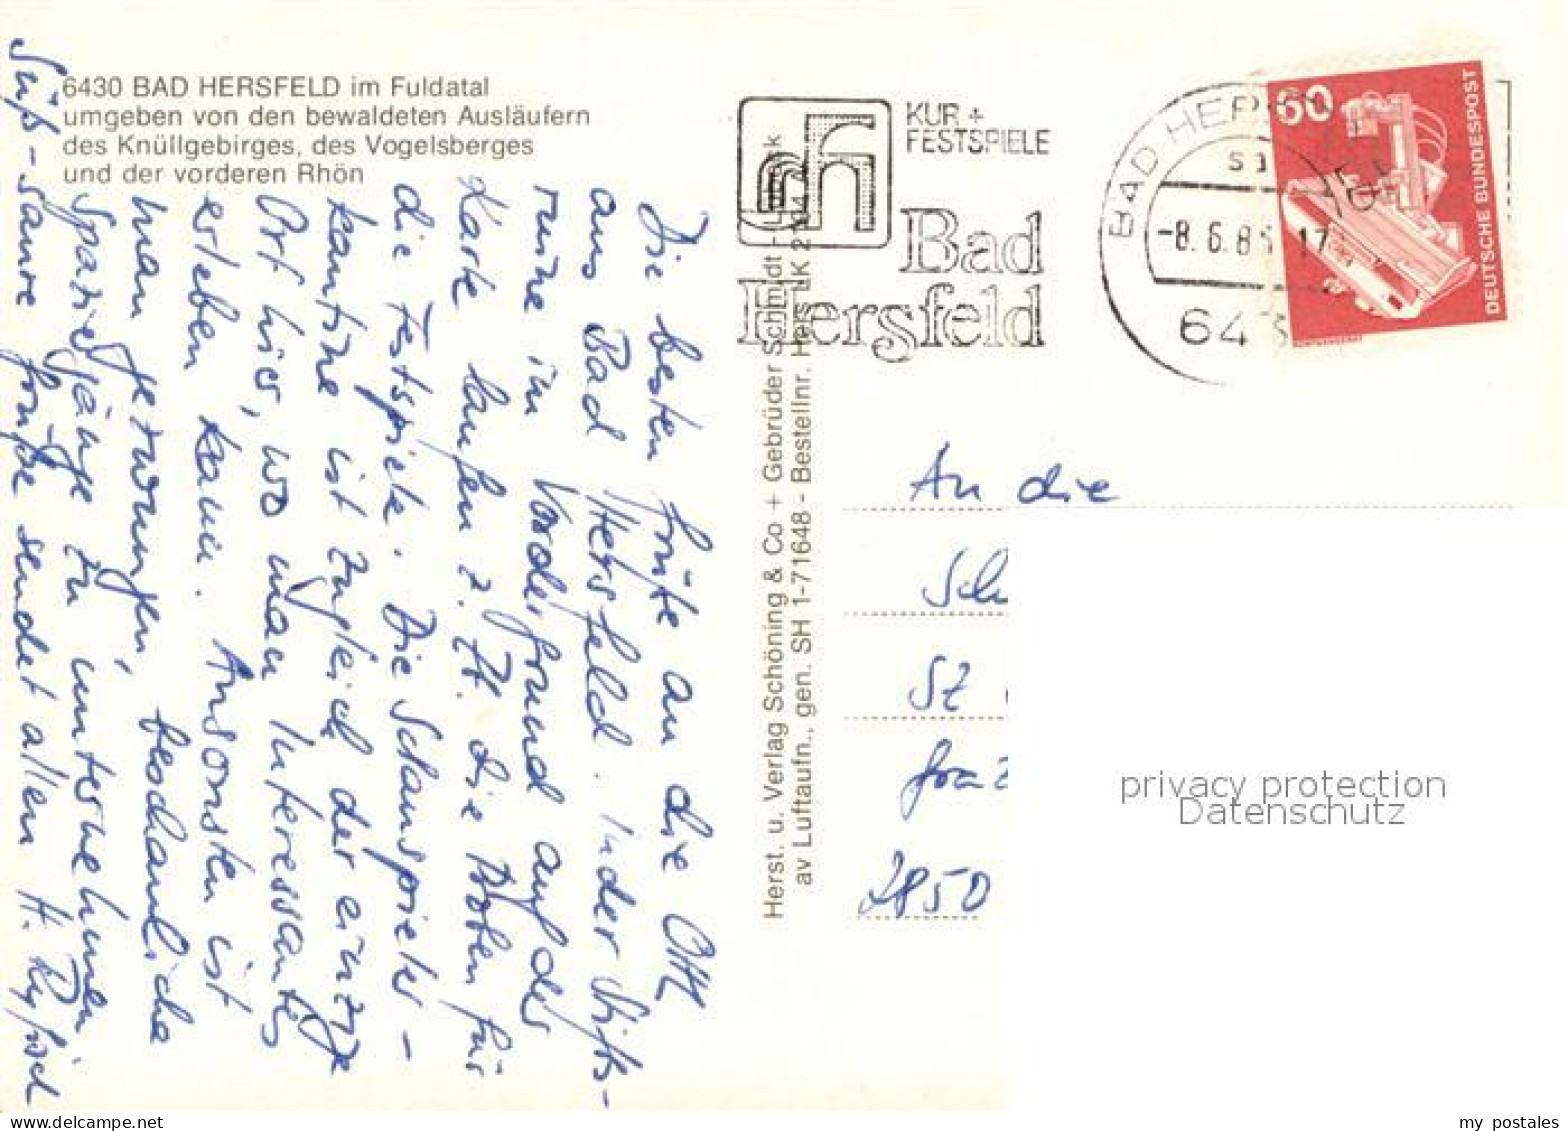 6430 BAD HERSFELD im Fuldatal
umgeben von den bewaldeten Ausläufern
des Knüllgebirges, des Vogelsberges
und der vorderen Rhön
Die besten Grüße an die
aus Bad Hersfeld. In der Stifts-
ruine im Vordergrund auf der
Karte laufen z. Zt. die Proben für
die Festspiele. Die Schauspieler-
kantine ist zugleich der einzige
Ort hier, wo man Interessantes
erleben kann. Ansonsten ist
man gezwungen, beschauliche
Spaziergänge zu unternehmen.
Süß-saure Grüße sendet allen H.
Herst. u. Verlag Schöning & Co + Gebrüder Schmidt - L
av Luftaufn., gen. SH 1-71648 - Bestellnr. Hers LK 2
KUR +
FESTSPIELE
Bad
Hersfeld
BAD HER
-8.6.8 17
643
60
DEUTSCHE BUNDESPOST
An die
Sch
SZ
Graz
2850
privacy protection
Datenschutz
my postales